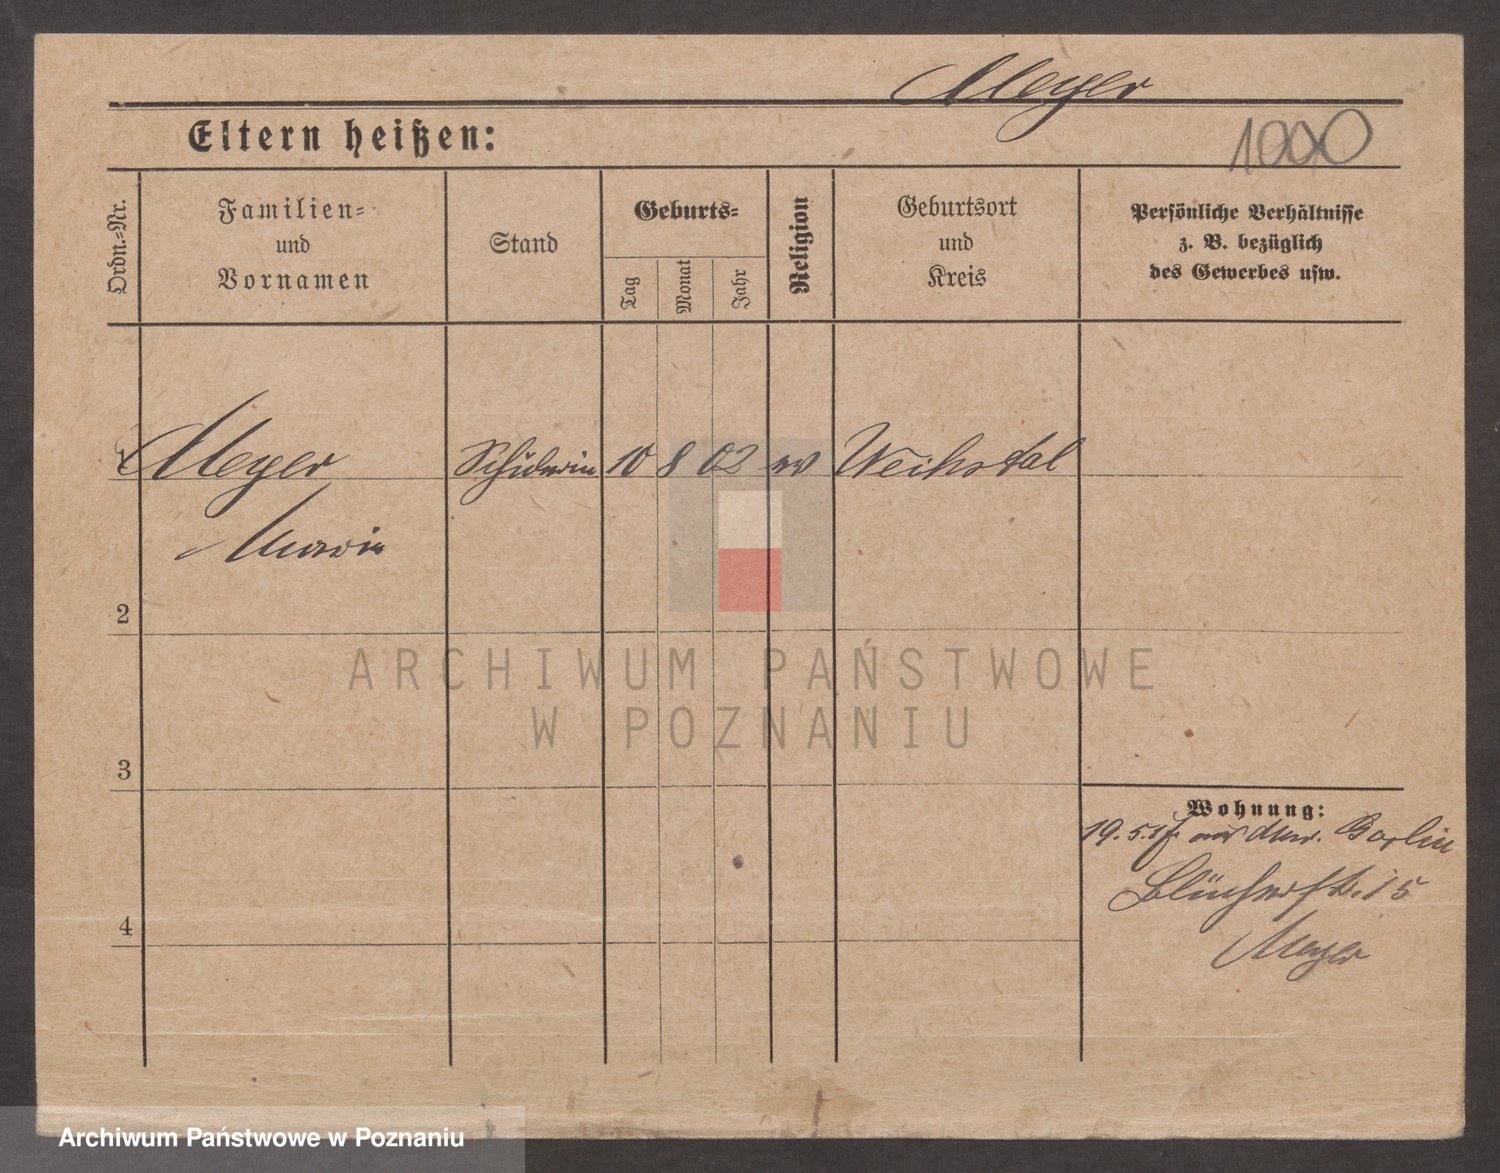 Meyer
Eltern heißen:
1000
Ordn.-Nr.
Familien-
und
Vornamen
Stand
Geburts-
Tag
Monat
Jahr
Religion
Geburtsort
und
Kreis
Persönliche Verhältnisse
z. B. bezüglich
des Gewerbes usw.
Meyer Schülerin 10 8 02 ev Weihstal
2
ARCHIWUM PAŃSTWOWE
W POZNANIU
3
Wohnung:
19.5. Berlin
Blücherstr. 15
Meyer
4
Archiwum Państwowe w Poznaniu